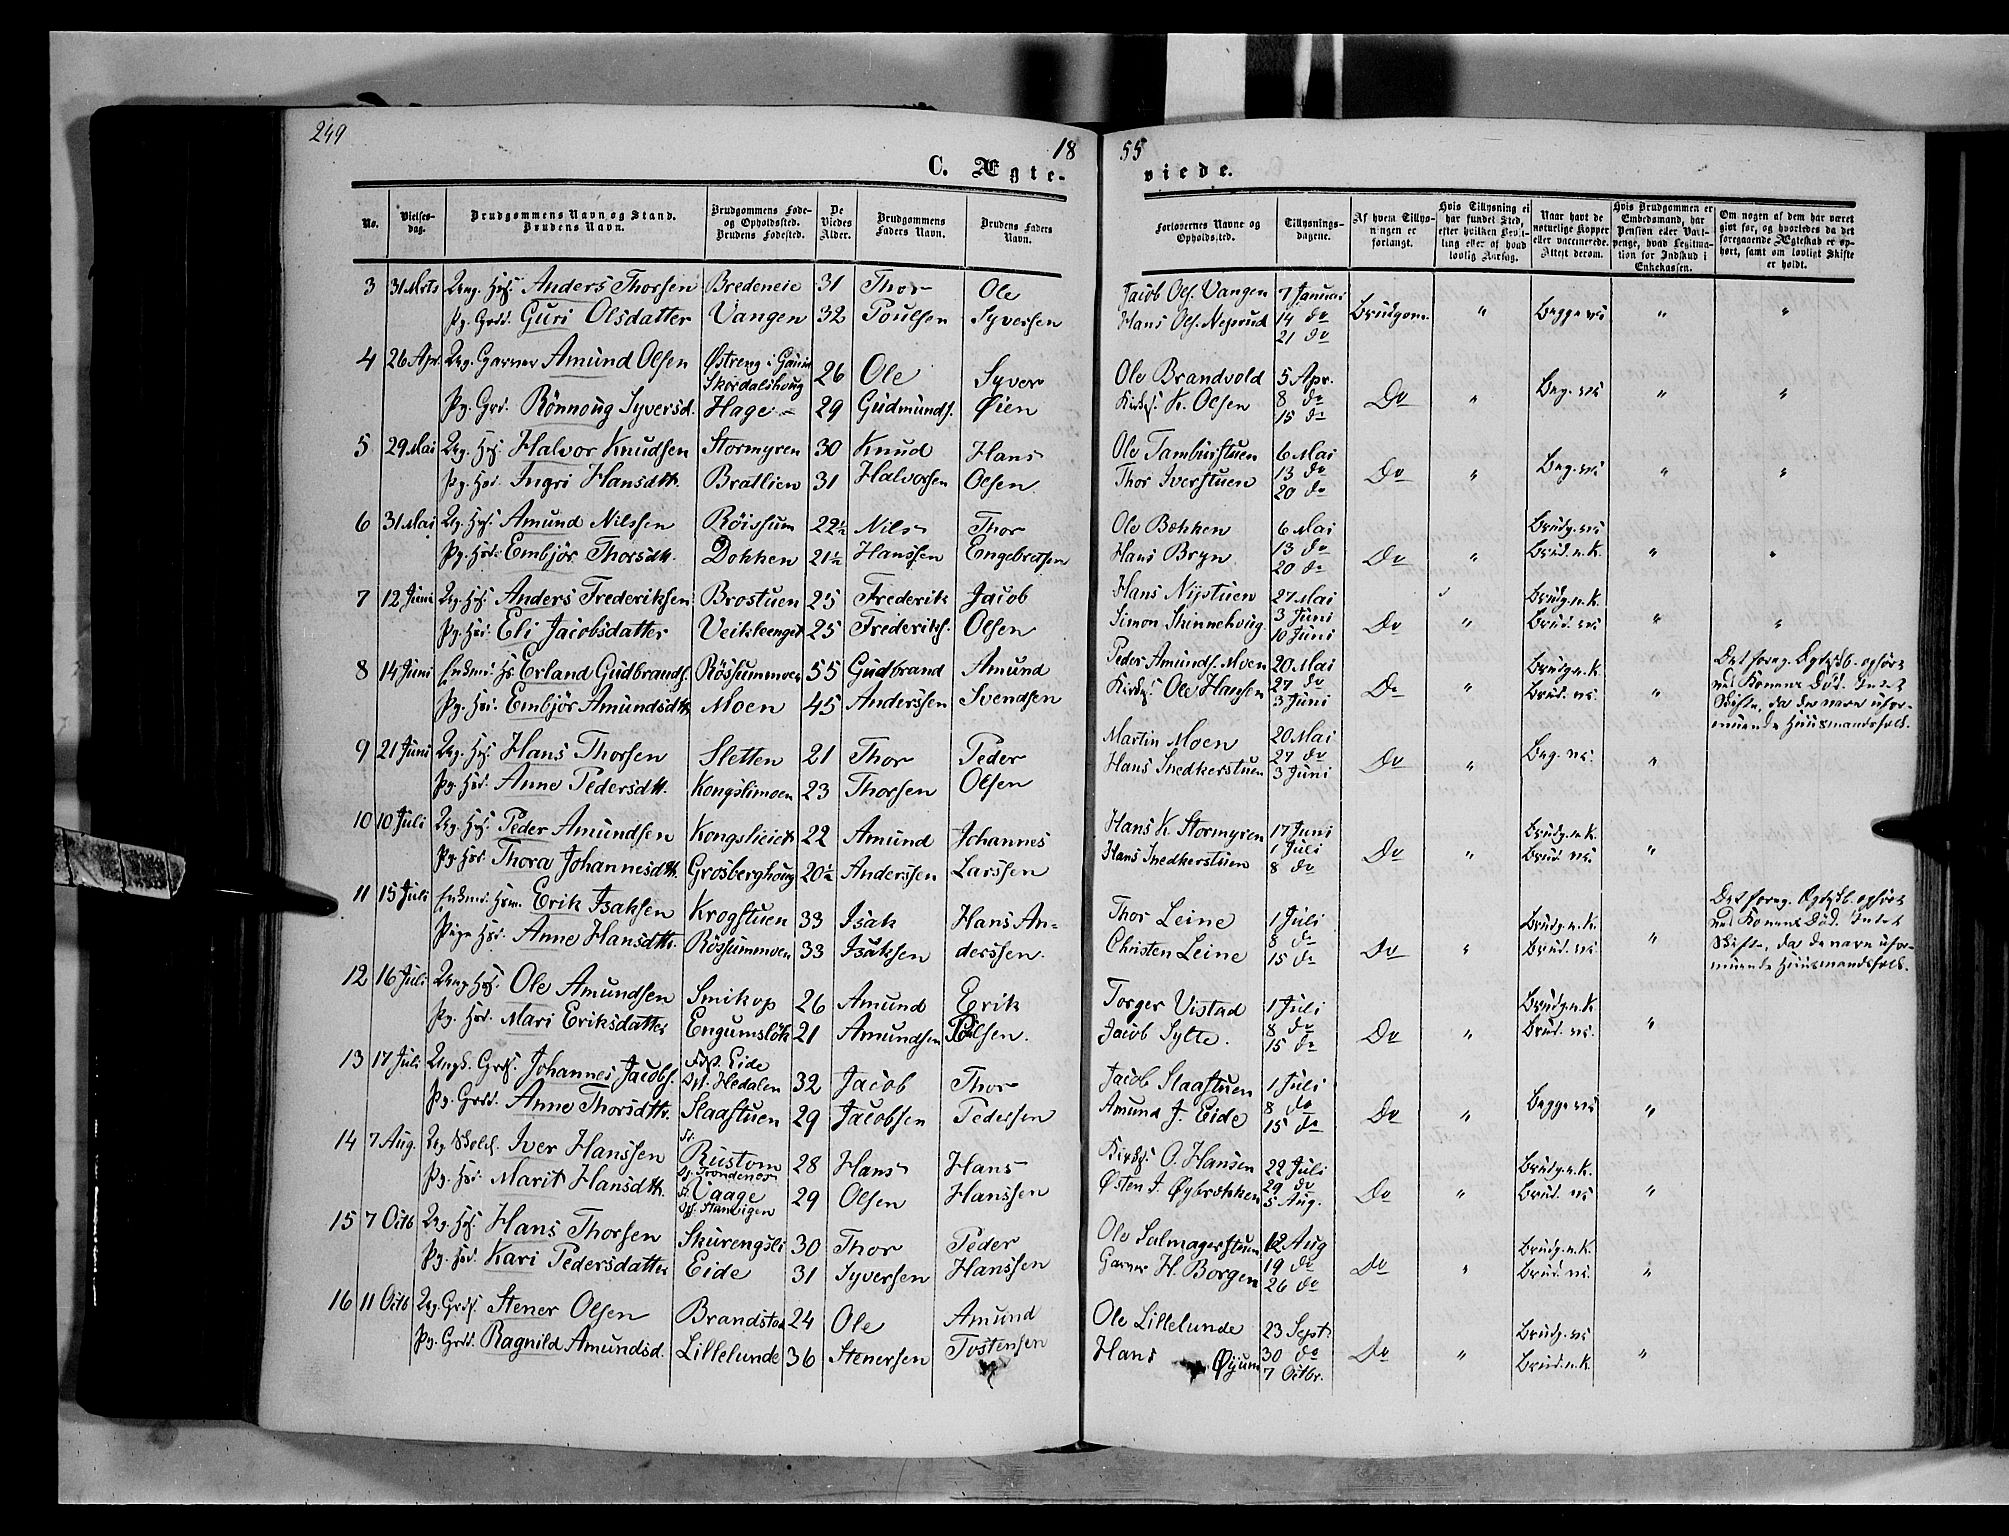 249
18 55
C. Ægte- viede.
No.
Vielses-
dag.
Brudgommens Navn og Stand.
Brudens Navn.
Brudgommens Føde-
og Opholdssted.
Brudens Fødested.
De
Viedes
Alder.
Brudgommens
Faders Navn.
Brudens Faders
Navn.
Forlovernes Navne og
Opholdssted.
Tillysnings-
dagene.
Af hvem Tillys-
ningen er
forlangt.
Hvis Tillysning ei
har fundet Sted,
efter hvilken Bevil-
ling eller af hvad
lovlig Aarsag.
Naar havt de
naturlige Kopper
eller vaccinerede.
Attest derom.
Hvis Brudgommen er
Embedsmand, har
Pension eller Vart-
penge, hvad Legitima-
tion for Indskud i
Enkekassen.
Om nogen af dem har været
gift før, og hvorledes da det
foregaaende Ægteskab er op-
hørt, samt om lovligt Skifte
er holdt.
3 31 Marts Ung. Hs. Anders Thorsen Bredeneie 31 Thor Ole Jacob Ols. Vangen 7 Januar
Pg. Grd. Guri Olsdatter Vangen 32 Poulsen Syversen Hans Ols. Neprud 14 do Brudgom. " Begge vi " "
21 do
4 26 Apr. Ung. Garver Amund Olsen Østreng i Gausd.
Skordalshoug 26 Ole Syver Ole Brandvold 5 Apr.
Pg. Grd. Rönnoug Syversd. Hage 29 Gudmunds. Øien Kirkes. K. Olsen 8 do Do " Beg. va " "
15 do
5 29 Mai Ung. Hs. Halvor Knudsen Stormyren 30 Knud Hans Ole Tamburstuen 6 Mai
Pg. Hsd. Ingri Hansdtt. Bratlien 31 Halvorsen Olsen Thor Iverstuen 13 do Do " Beg. va " "
20 do
6 31 Mai Ung. Hs. Amund Nilssen Röissum 22½ Nils Thor Ole Bækken 6 Mai Brudg. va
Pg. Hsd. Embjör Thorsdtt. Dokken 21½ Hanssen Engebretsen Hans Bryn 13 do Do " Brud. n.K. " "
20 do
7 12 Juni Ung. Hs. Anders Frederiksen Brostuen 25 Frederik Jacob Hans Nystuen 27 Mai Brudg. n.K.
Pg. Hsd. Eli Jacobsdatter Veikleenget 25 Frederiks. Olsen Simon Skinnehoug 3 Juni Do " Brud. va " "
10 Juni
8 14 Juni Enkem. Hs. Erland Gudbrands. Rössummoen 55 Gudbrand Amund Peder Amunds. Moen 20 Mai Brudg. n.K. Det foreg. Ægtesk. ophört
Pg. Hsd. Embjör Amundsdtt. Moen 45 Anderssen Svendsen Kirkes. Ole Hansen 27 do Do " Brud. va " ved Konens Död. Intet
3 Juni Skifte, da de vare ufor-
muende Huusmandsfolk.
9 21 Juni Ung. Hs. Hans Thorsen Sletten 21 Thor Peder Martin Moen 20 Mai
Pg. Hsd. Anne Pedersdtt. Kongslimoen 23 Thorsen Olsen Hans Snedkerstuen 27 do Do " Beg. va "
3 Juni
10 10 Juli Ung. Hs. Peder Amundsen Kongslieiet 22 Amund Johannes Hans K. Stormyren 17 Juni Brudg. n.K.
Pg. Hsd. Thora Johannesdtt. Grosberghoug 20½ Anderssen Larssen Hans Snedkerstuen 1 Juli Do " Brud. va "
8 do
11 15 Juli Enkem. Hsm. Erik Isaksen Krogstuen 33 Isak Hans An- Thor Leine 1 Juli Brudg. n.K. Det foreg. Ægtesk. ophört
Pige Hsd. Anne Hansdtt. Rössummoen 33 Isaksen derssen. Christen Leine 8 do Do " Brud. va " ved Konens Död. Intet
15 do Skifte, da de vare ufor-
muende Huusmandsfolk.
12 16 Juli Ung. Hs. Ole Amundsen Smikop 26 Amund Erik Torger Vistad 1 Juli Brudg. n.K.
Pg. Hsd. Mari Eriksdatter Engumslök 21 Amundsen Olsen. Jacob Sylte. 8 do Do " Brud. va. "
15 do
13 17 Juli Ungk. Grds. Johannes Jacobs. Föds. Eide
Ops. Hedalen 32 Jacob Thor Jacob Slaastuen 1 Juli
Pg. Grdd. Anne Thorsdtt. Slaastuen 29 Jacobsen Pedersen Amund J. Eide 8 do Do " Begge va "
15 do
14 7 Aug. Ung. Skolel. Iver Hanssen F. Rustom
Op. Trondenes 28 Hans Hans Kirkes. O. Hansen 22 Juli Brudg. n.K.
Pg. Hsd. Marit Hansdtt. F. Vaage
Ops. Stamvigen 29 Olsen Hanssen Østen J. Øybrækken 29 do Do " Brud. va "
5 Aug.
15 7 Octb Ung. Hs. Hans Thorsen Skurengsli 30 Thor Peder Ole Salmagerstuen 12 Aug Brudg. n.K.
Pg. Hsd. Kari Pedersdatter Eide 31 Syversen Hanssen Garver H. Borgen 19 do Do " Brud. va. "
26 do
16 11 Octb Ung. Grds. Stener Olsen Brandstad 24 Ole Amund Ole Lillelunde 23 Sept. Brudg. va
Pg. Grdd. Ragnild Amundsd. Lillelunde 36 Stenersen Tostensen Hans Øyum 30 do Do " Brud. n.K. "
7 Octbr.